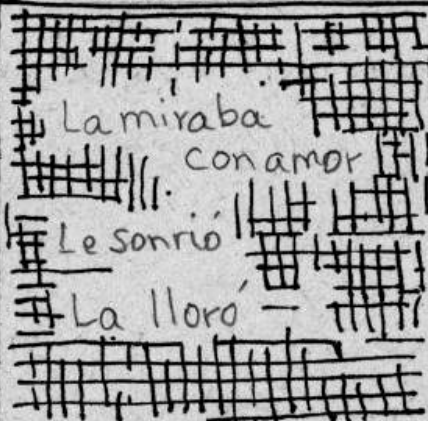 La miraba
con amor
Le sonrió
La lloró